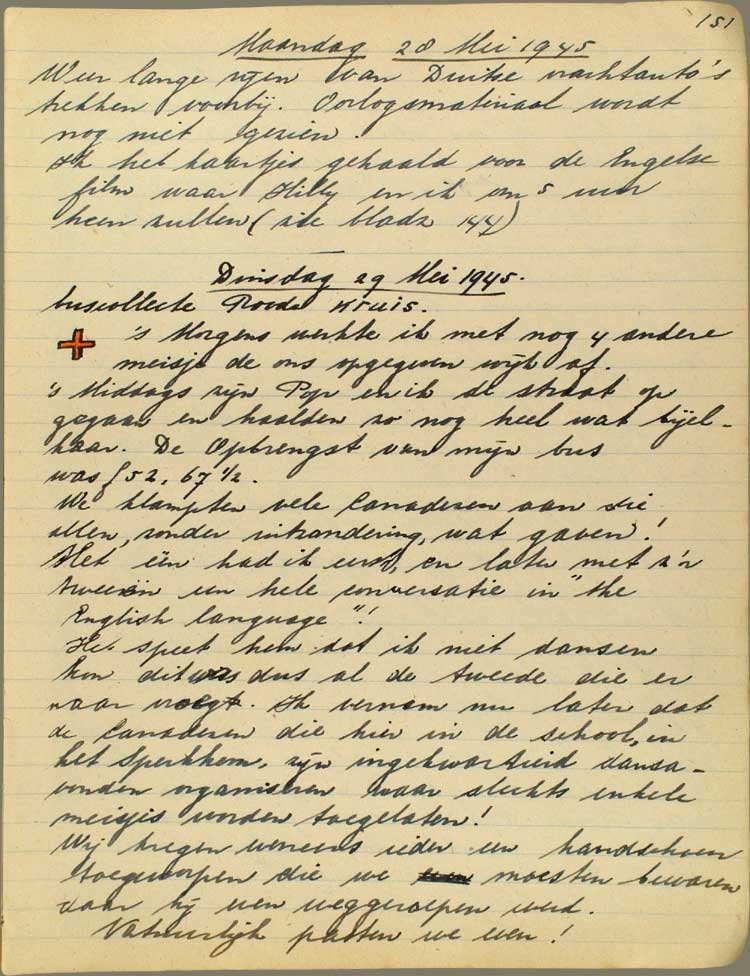 151
Maandag 28 Mei 1945
Weer lange rijen van Duitse vrachtauto's
trekken voorbij. Oorlogsmateriaal wordt
nog niet gezien.
Ik heb kaartjes gehaald voor de Engelse
film waar Hilly en ik om 5 uur
heen zullen (zie bladz 144)
Dinsdag 29 Mei 1945.
buscollecte Roode Kruis.
's Morgens werkte ik met nog 4 andere
meisje de ons opgegeven wijk af.
's Middags zijn Pop en ik de straat op
gegaan en haalden zo nog heel wat bijel-
kaar. De Opbrengst van mijn bus
was f 52, 67 ½.
We klampten vele Canadezen aan die
allen, zonder uitzondering, wat gaven!
Met één had ik eerst, en later met z'n
tweeën een hele conversatie in "the
English language"!
Het speet hem dat ik niet dansen
kon dit was dus al de tweede die er
naar vroegt. Ik vernam nu later dat
de Canadezen die hier in de school, in
het Sperkhem, zijn ingekwartieid dansa-
vonden organiseren waar slechts enkele
meisjes worden toegelaten!
Wij kregen ieder een handschoen
toegeworpen die we moesten bewaren
daar hij even weggeroepen werd.
Natuurlijk pasten we even!